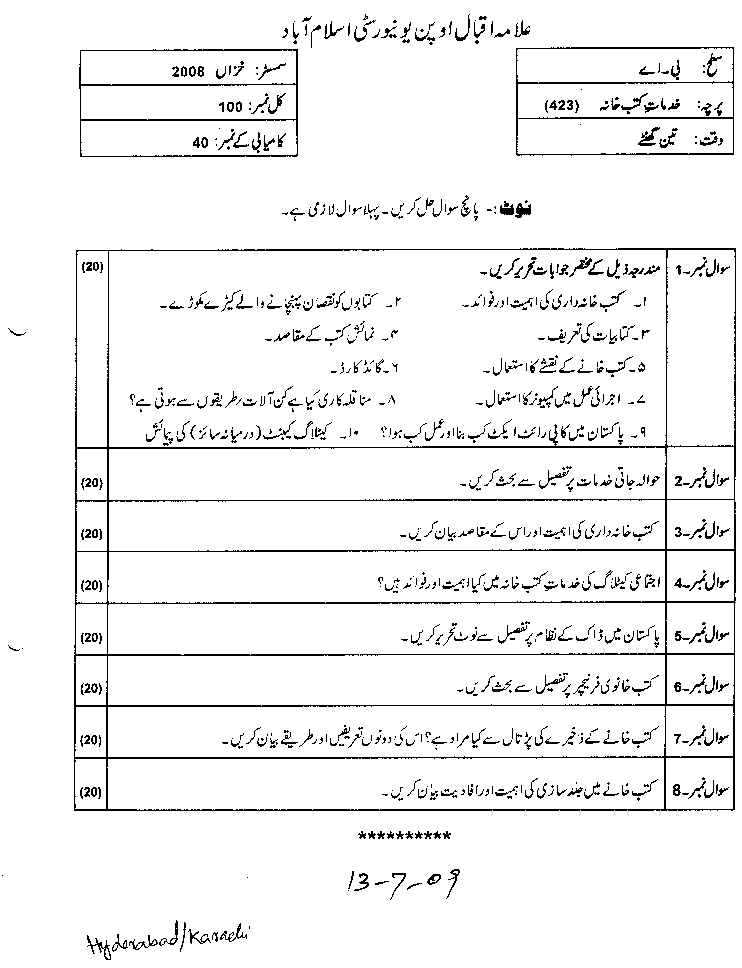 علامہ اقبال اوپن یونیورسٹی اسلام آباد
سطح: بی۔اے
پرچہ: خدمات کتب خانہ (423)
وقت: تین گھنٹے
سمسٹر: خزاں 2008
کل نمبر: 100
کامیابی کے نمبر: 40
نوٹ:- پانچ سوال حل کریں۔ پہلا سوال لازمی ہے۔
سوال نمبر۔1 مندرجہ ذیل کے مختصر جوابات تحریر کریں۔ (20)
۱۔ کتب خانہ داری کی اہمیت اور فوائد۔ ۲۔ کتابوں کو نقصان پہنچانے والے کیڑے مکوڑے۔
۳۔ کتابیات کی تعریف۔ ۴۔ نمائش کتب کے مقاصد۔
۵۔ کتب خانے کے نقشے کا استعمال۔ ۶۔ گائڈ کارڈ۔
۷۔ اجرائی عمل میں کمپیوٹر کا استعمال۔ ۸۔ مناقلہ کاری کیا ہے کن آلات/طریقوں سے ہوتی ہے؟
۹۔ پاکستان میں کاپی رائٹ ایکٹ کب بنا اور عمل کب ہوا؟ ۱۰۔ کیٹلاگ کیبنٹ (درمیانہ سائز) کی پیمائش
سوال نمبر۔2 حوالہ جاتی خدمات پر تفصیل سے بحث کریں۔ (20)
سوال نمبر۔3 کتب خانہ داری کی اہمیت اور اس کے مقاصد بیان کریں۔ (20)
سوال نمبر۔4 اجتماعی کیٹلاگ کی خدمات کتب خانہ میں کیا اہمیت اور فوائد ہیں؟ (20)
سوال نمبر۔5 پاکستان میں ڈاک کے نظام پر تفصیل سے نوٹ تحریر کریں۔ (20)
سوال نمبر۔6 کتب خانوی فرنیچر پر تفصیل سے بحث کریں۔ (20)
سوال نمبر۔7 کتب خانے کے ذخیرے کی پڑتال سے کیا مراد ہے؟ اس کی دونوں تعریفیں اور طریقے بیان کریں۔ (20)
سوال نمبر۔8 کتب خانے میں جلد سازی کی اہمیت اور افادیت بیان کریں۔ (20)
**********
13-7-09
Hyderabad/Karachi